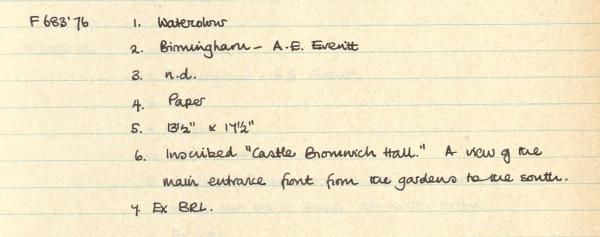 F 683'76 1. Watercolour
2. Birmingham - A.E. Everitt
3. n.d.
4. Paper
5. 13½" x 17½"
6. Inscribed "Castle Bromwich Hall." A view of the
main entrance front from the gardens to the south.
7. Ex BRL.